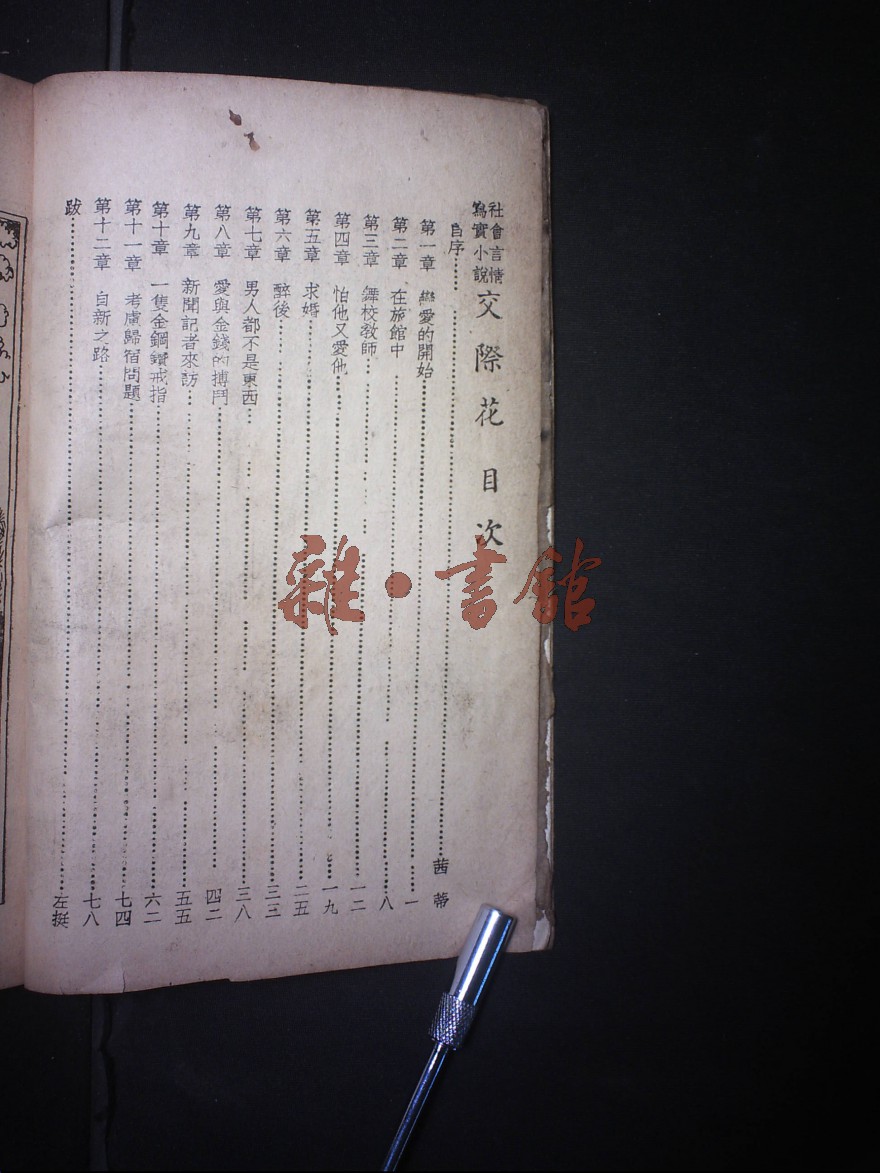 社會言情
寫實小說
交際花目次
自序 茜蒂
第一章 戀愛的開始 一
第二章 在旅館中 八
第三章 舞校教師 一二
第四章 怕他又愛他 一九
第五章 求婚 二五
第六章 醉後 三三
第七章 男人都不是東西 三八
第八章 愛與金錢的搏鬥 四二
第九章 新聞記者來訪 五五
第十章 一隻金鋼鑽戒指 六二
第十一章 考慮歸宿問題 七四
第十二章 自新之路 七八
跋 左挺
雜·書館